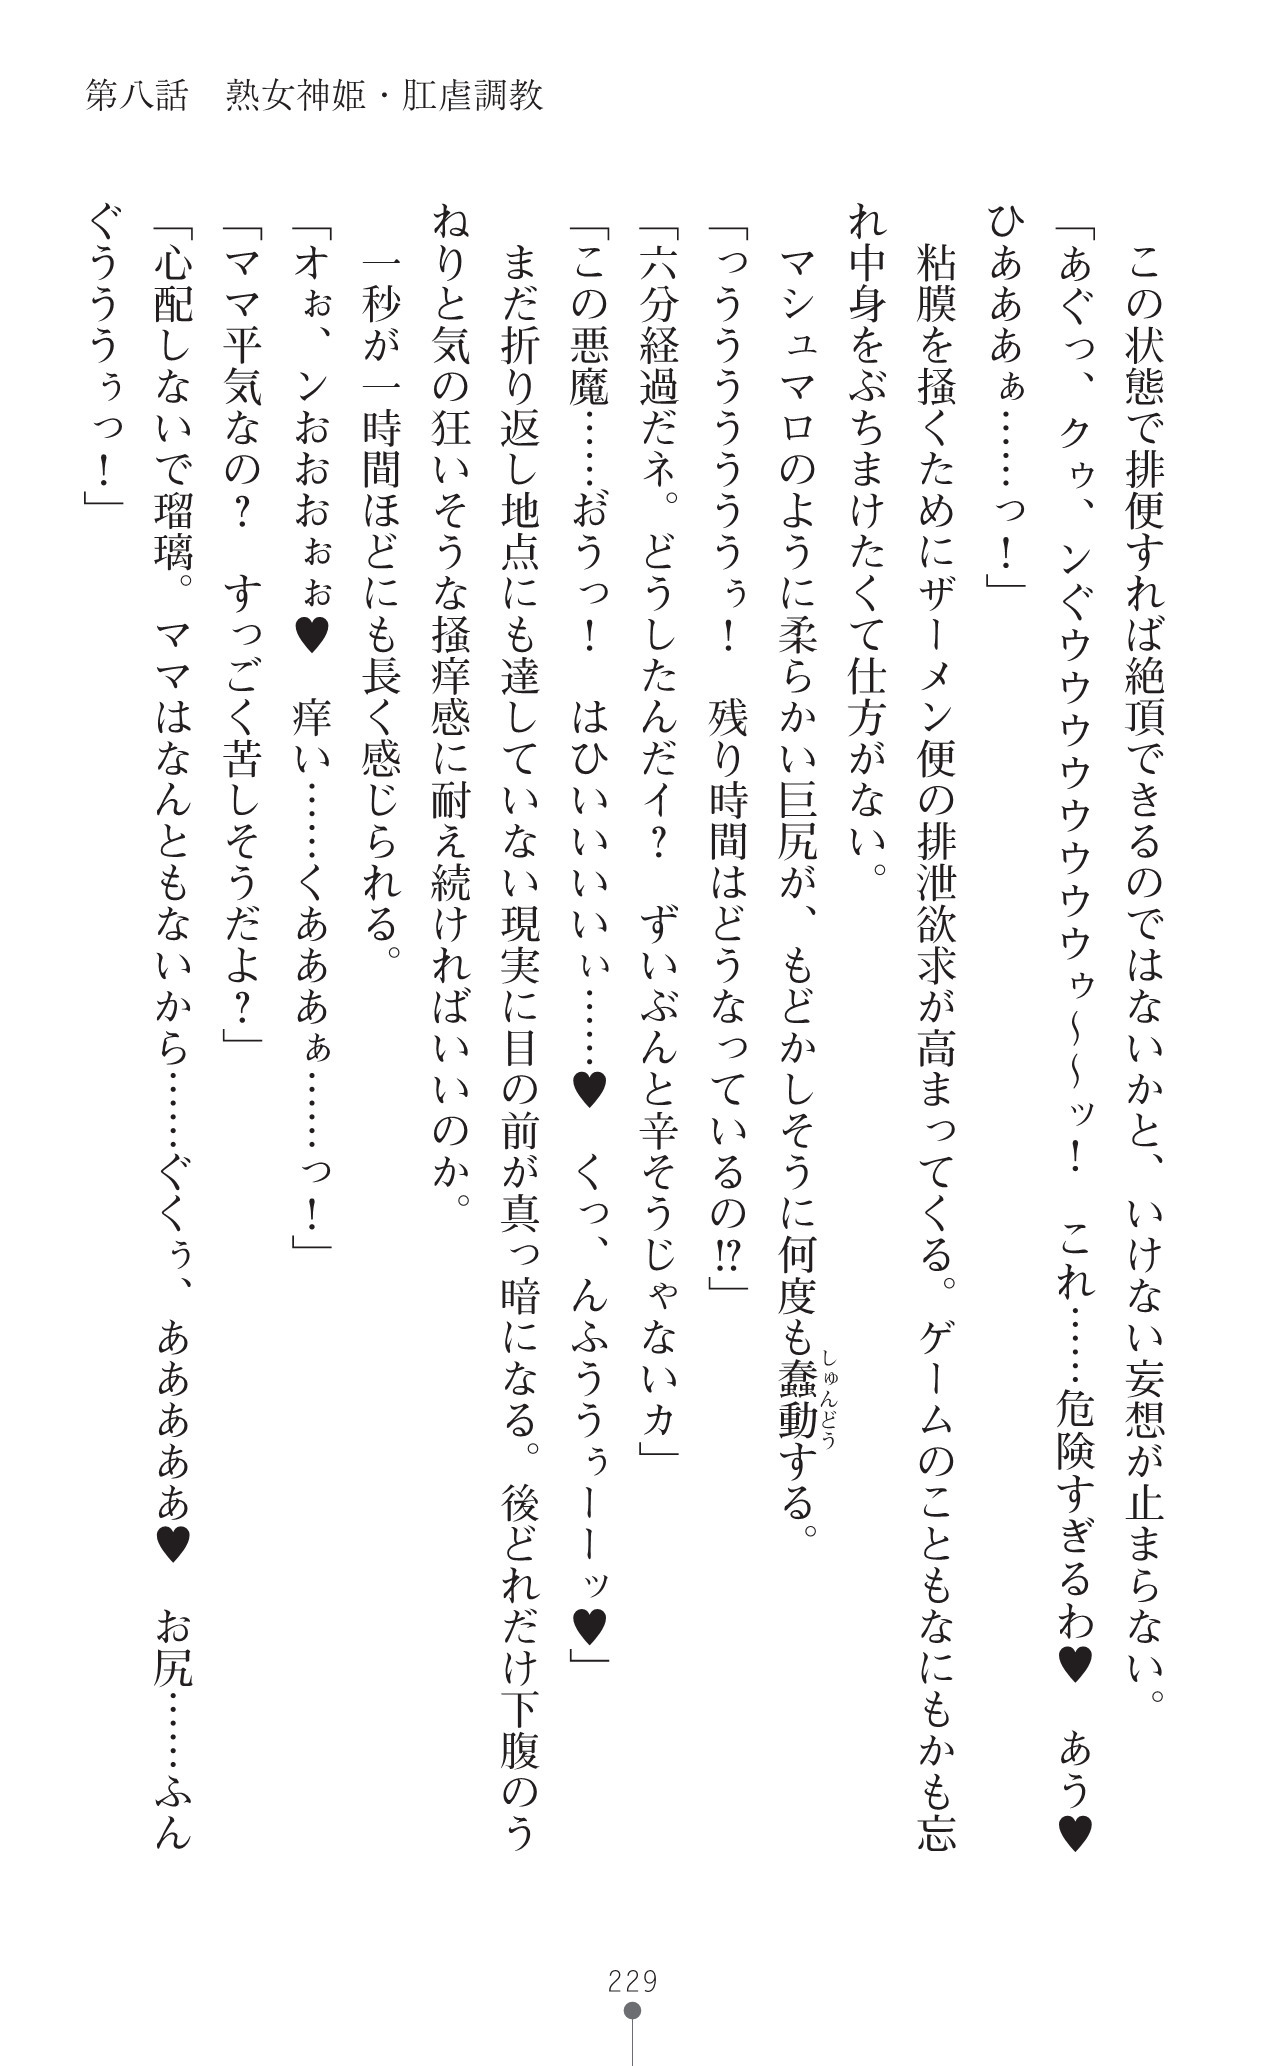 第八話　熟女神姫・肛虐調教
　この状態で排便すれば絶頂できるのではないかと、いけない妄想が止まらない。
「あぐっ、クゥ、ンぐウウウウウウウウゥ～～ッ！　これ……危険すぎるわ♥　あう♥
ひあああぁ……っ！」
　粘膜を掻くためにザーメン便の排泄欲求が高まってくる。ゲームのこともなにもかも忘
れ中身をぶちまけたくて仕方がない。
　マシュマロのように柔らかい巨尻が、もどかしそうに何度も蠢動しゅんどうする。
「っううううううぅ！　残り時間はどうなっているの⁉」
「六分経過だネ。どうしたんだイ？　ずいぶんと辛そうじゃないカ」
「この悪魔……お゛うっ！　はひいいいいぃ……♥　くっ、んふううぅーーッ♥」
　まだ折り返し地点にも達していない現実に目の前が真っ暗になる。後どれだけ下腹のう
ねりと気の狂いそうな掻痒感に耐え続ければいいのか。
　一秒が一時間ほどにも長く感じられる。
「オぉ、ンおおおぉぉ♥　痒い……くあああぁ……っ！」
「ママ平気なの？　すっごく苦しそうだよ？」
「心配しないで瑠璃。ママはなんともないから……ぐくぅ、あああああ♥　お尻……ふん
ぐうううぅっ！」
229